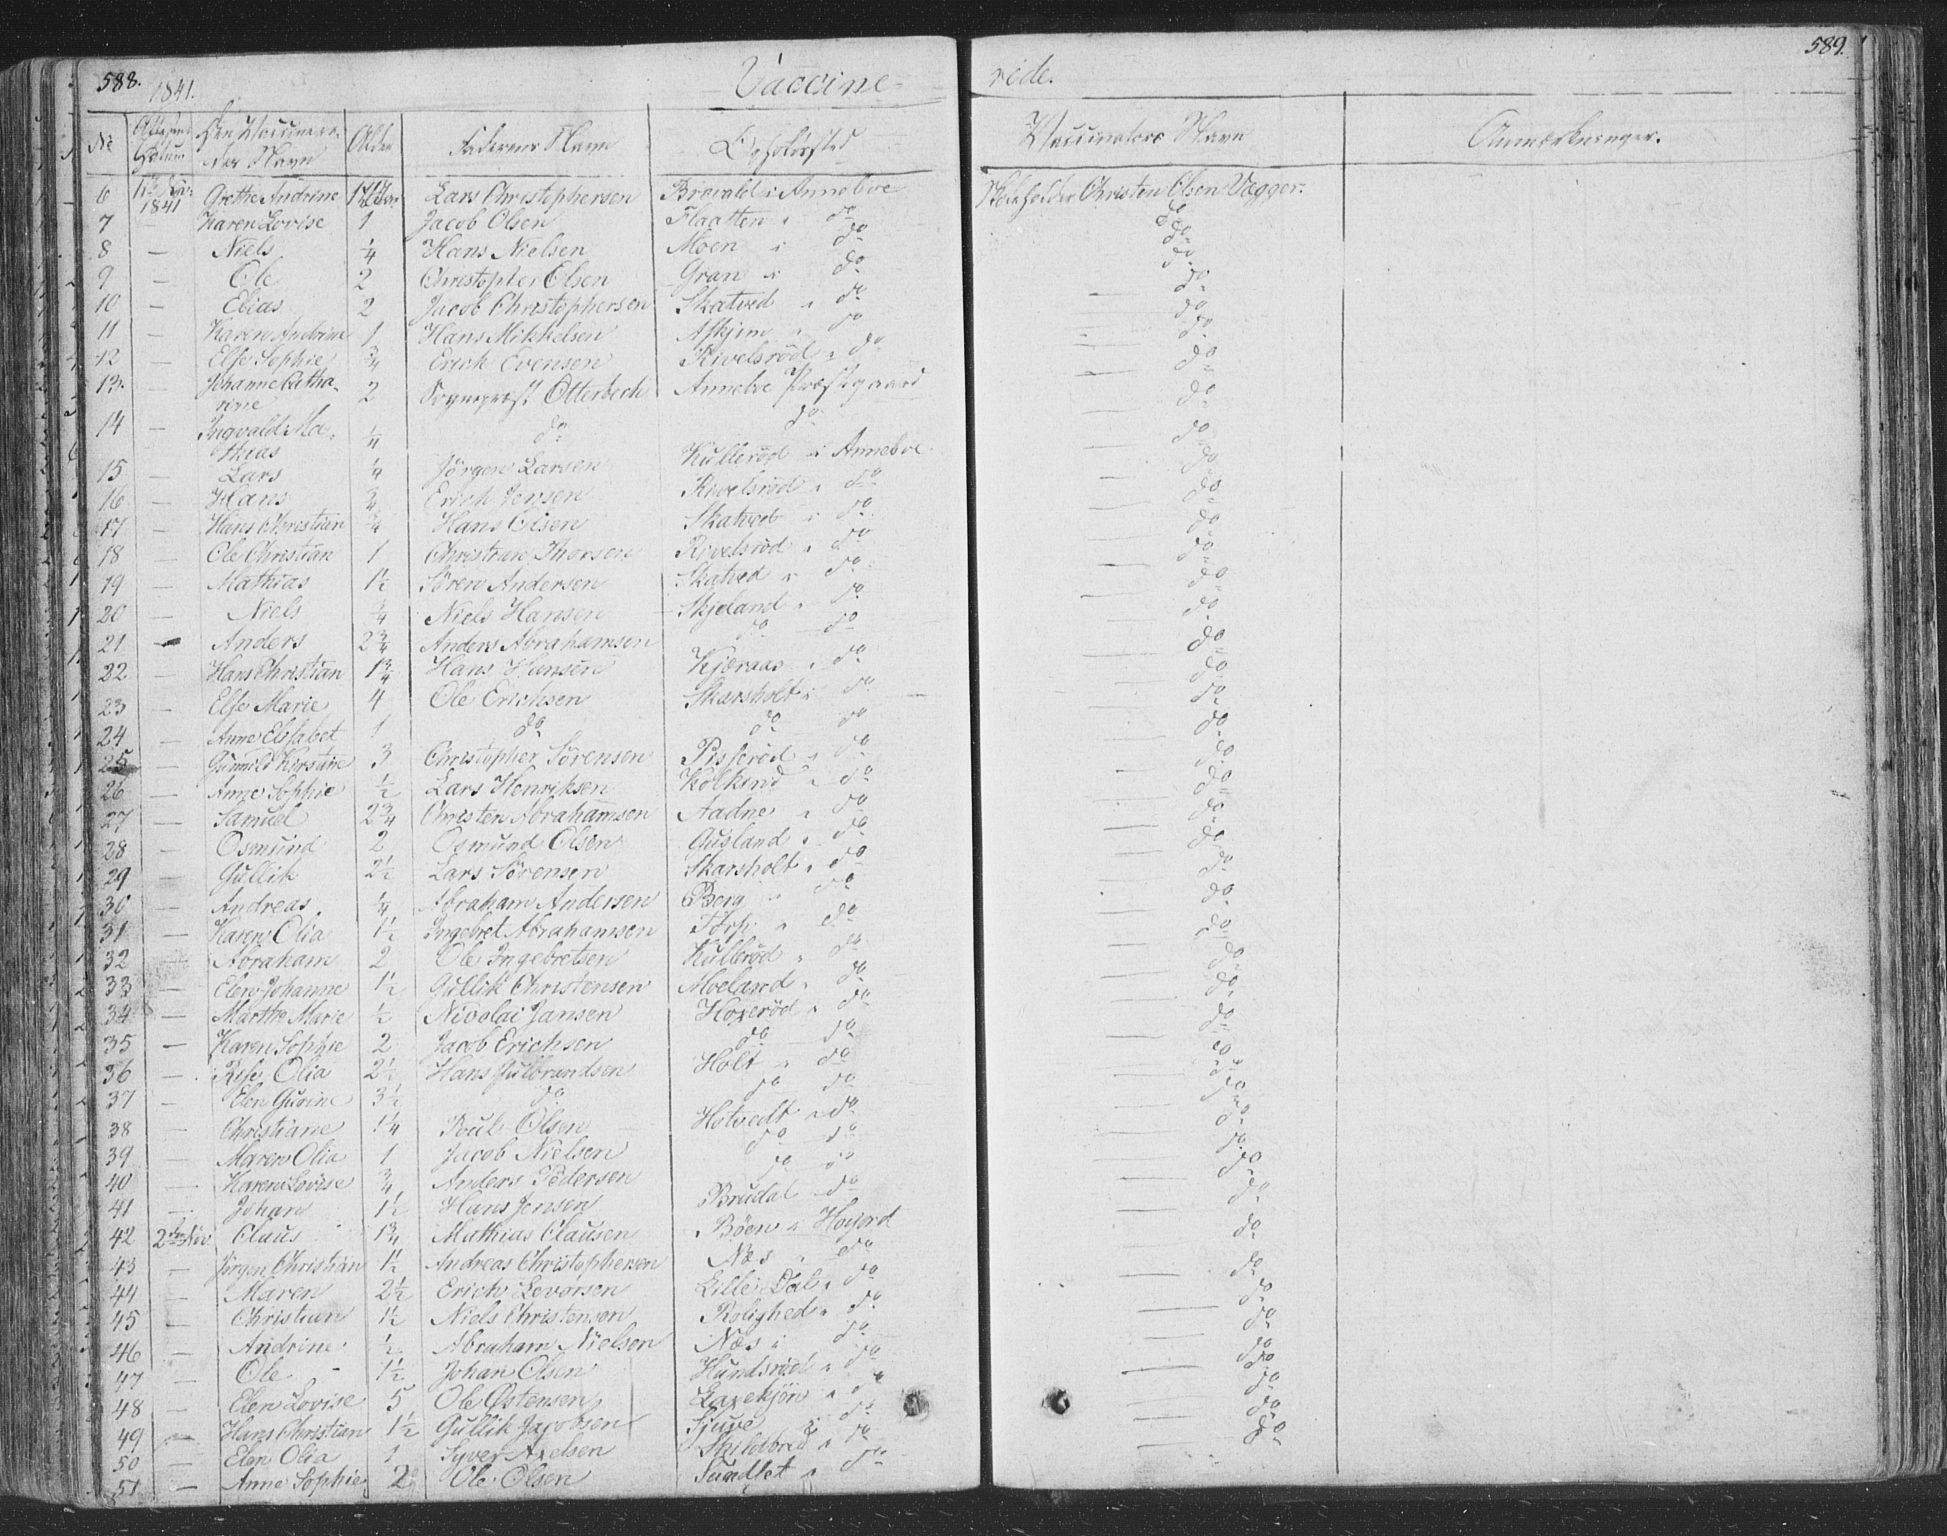 588.
1841.
Vaccine-
rede.
589.
No Attestens Datum Den Vaccineredes Navn Alder Faderens Navn Opholdssted Vaccinators Navn Anmærkninger.
6 1841 Grethe Andrine Lars Christophersen i Anneboe Christen Olsen Vegger.
7 — Karen Lovise 1 Jacob Olsen Flaatten i do do
8 — Niels ¼ Hans Nielsen Moen i do do
9 — Ole 2 Christopher Olsen Gran i do do
10 — Elias 2 Jacob Christophersen Skatved i do — do
11 — Karen Andrine 1 Hans Mikkelsen Askjem i do — do
12 — Else Sophie ¾ Erick Evensen Rivelsrød i do — do
13 — Johanne Catharine 2 Sognepræst Otterbech Anneboe Præstegaard — do
14 — Ingvald Mathias ¼ do do — do
15 — Lars ¼ Jørgen Larsen Kullerød i Anneboe — do
16 — Hans ¾ Erich Jensen Rivelsrød i do — do
17 — Hans Christian ¾ Hans Olsen Skatved i do — do
18 — Ole Christian 1 Christian Thorsen Rivelsrød i do — do
19 — Mathias 1½ Søren Andersen Skatved i do — do
20 — Niels ¾ Niels Hansen Skjeland i do — do
21 — Anders 2¾ Anders Abrahamsen do do — do
22 — Hans Christian 1¾ Hans Hansen Kjæraas i do — do
23 — Else Marie 4 Ole Erichsen Skarsholt i do — do
24 — Anne Elisabet 1 do do do — do
25 — Gunnild Kirstine 3 Christopher Sørensen Pisserød i do — do
26 — Anne Sophie ½ Lars Henriksen i do — do
27 — Samuel 2¾ Christen Abrahamsen Aadne i do — do
28 — Osmund 2 Osmund Olsen Gusland i do — do
29 — Gullik 2½ Lars Sørensen Skarsholt i do — do
30 — Andreas ¼ Abraham Andersen Berg i do — do
31 — Karen Olia 1½ Ingebret Abrahamsen Torp i do — do
32 — Abraham 2 Ole Ingebretsen Kullerød i do — do
33 — Elen Johanne 1½ Gullik Christensen Moeland i do — do
34 — Marthe Marie ½ Nicolai Jansen Hoxerød i do — do
35 — Karen Sophie 2 Jacob Erichsen do do — do
36 — Olia 2½ Hans Gulbrandsen Holt i do — do
37 — Elen Gurine 3½ do do do — do
38 — Christiane 1¼ Poul Olsen Hotvedt i do — do
39 — Maren Olia 1 Jacob Nielsen do do — do
40 — Karen Lovise ¾ Anders Pedersen do do — do
41 — Johan 1½ Hans Jensen Brudal do — do
42 2den Nov. Claus 1¾ Mathias Clausen Bøen i Høijord — do
43 — Jørgen Christian 1½ Andreas Christophersen Næs i do — do
44 — Maren 2½ Erich Levorsen Lille Dal i do — do
45 — Christian 1½ Niels Christensen Rolighed i do — do
46 — Andrine ½ Abraham Nielsen Næs i do — do
47 — Ole 1½ Johan Olsen Hundsrød i do — do
48 — Elen Lovise 5 Ole Østensen Laxekjøn i do — do
49 — Hans Christian 1½ Gullik Jacobsen Sjuve i do — do
50 — Elen Olia 1 Syver Axelsen Skildbred i do — do
51 — Anne Sophie 2 Ole Olsen Sundset i do